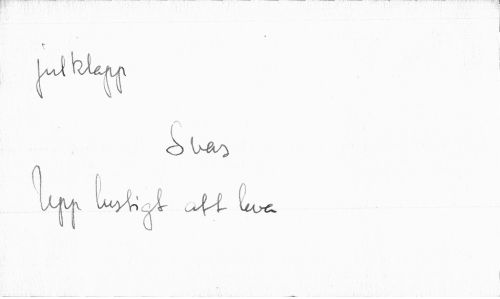 julklapp
Svas
Upp lustigt att leva